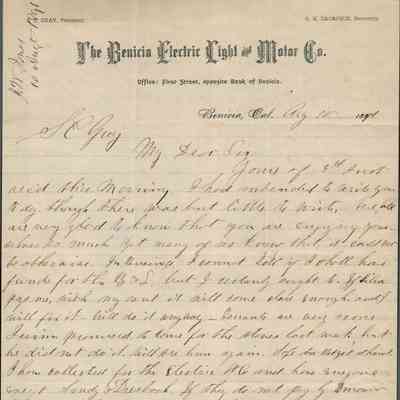 GRAY, President.
Secretary.
The Benicia Electric Light and Motor Co.
Office: First Street, opposite Bank of Benicia.
Benicia, Cal. Aug 10 189
Gray
My Dear Sir
Yours of 8th Inst
recd this Morning I had intended to write you
to day though there was but little to write, We all
are very glad to know that you are enjoying your-
selves so much yet many of us know that it could not
be otherwise. In I cannot tell if I shall have
funds for the B & L but I certainly ought to If
pays me, with my rent it will come close enough and I
will fix it - Will do it anyway - Tenants are very scarce
promised to come for the stoves last week, but
he did not do it. Will see him again.
I have collected for the Electric Co and have everyone
except If they do not pay by Tomorrow